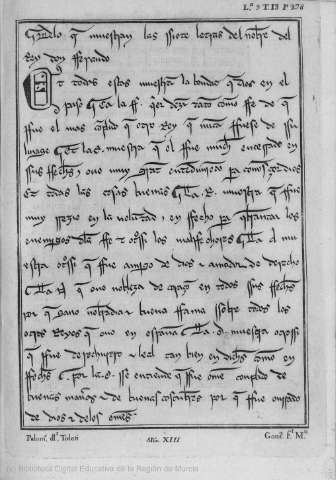 L.ª 9 T. 13 P. 278
q muestran las ssiete letras del nonbre del
Rey don fferrando
Et todas estas muestran la bondat que dios en el
puso que la ff. quier dezir tanto como ffe de q
ffue el mas conplido que otro Rey que nunca ffuese de ssu
linage Et la e. muestra que el ffue mucho encerrado en
sus ffechos, ovo muy grant entendimiento para conosçer dios
Et todas las cosas buenas. La R. muestra que ffue
muy rezio en la voluntad, en ffecho para quebrantar los
enemigos dela ffe et otrossi los malfechores. La a mu
estra otrossi que ffue amigo de dios e amador de derecho
La N que ovo nobleza de coraçon en todos ssus ffechos
por que gano nonbradia e buena ffama ssobre todos los
otros Reyes que ovo en espanna. La d. muestra otrossi
que ffue derechurero e leal tan bien en dichos como en
ffechos. por la o. sse entiende que ffue ome conplido de
buenas mannas e de buenas costunbres por que ffue onrrado
de dios e delos omes
Palom.ˢ dlᵗ. Toleti
Sig. XIII
(c) Biblioteca Digital Educativa de la Región de Murcia